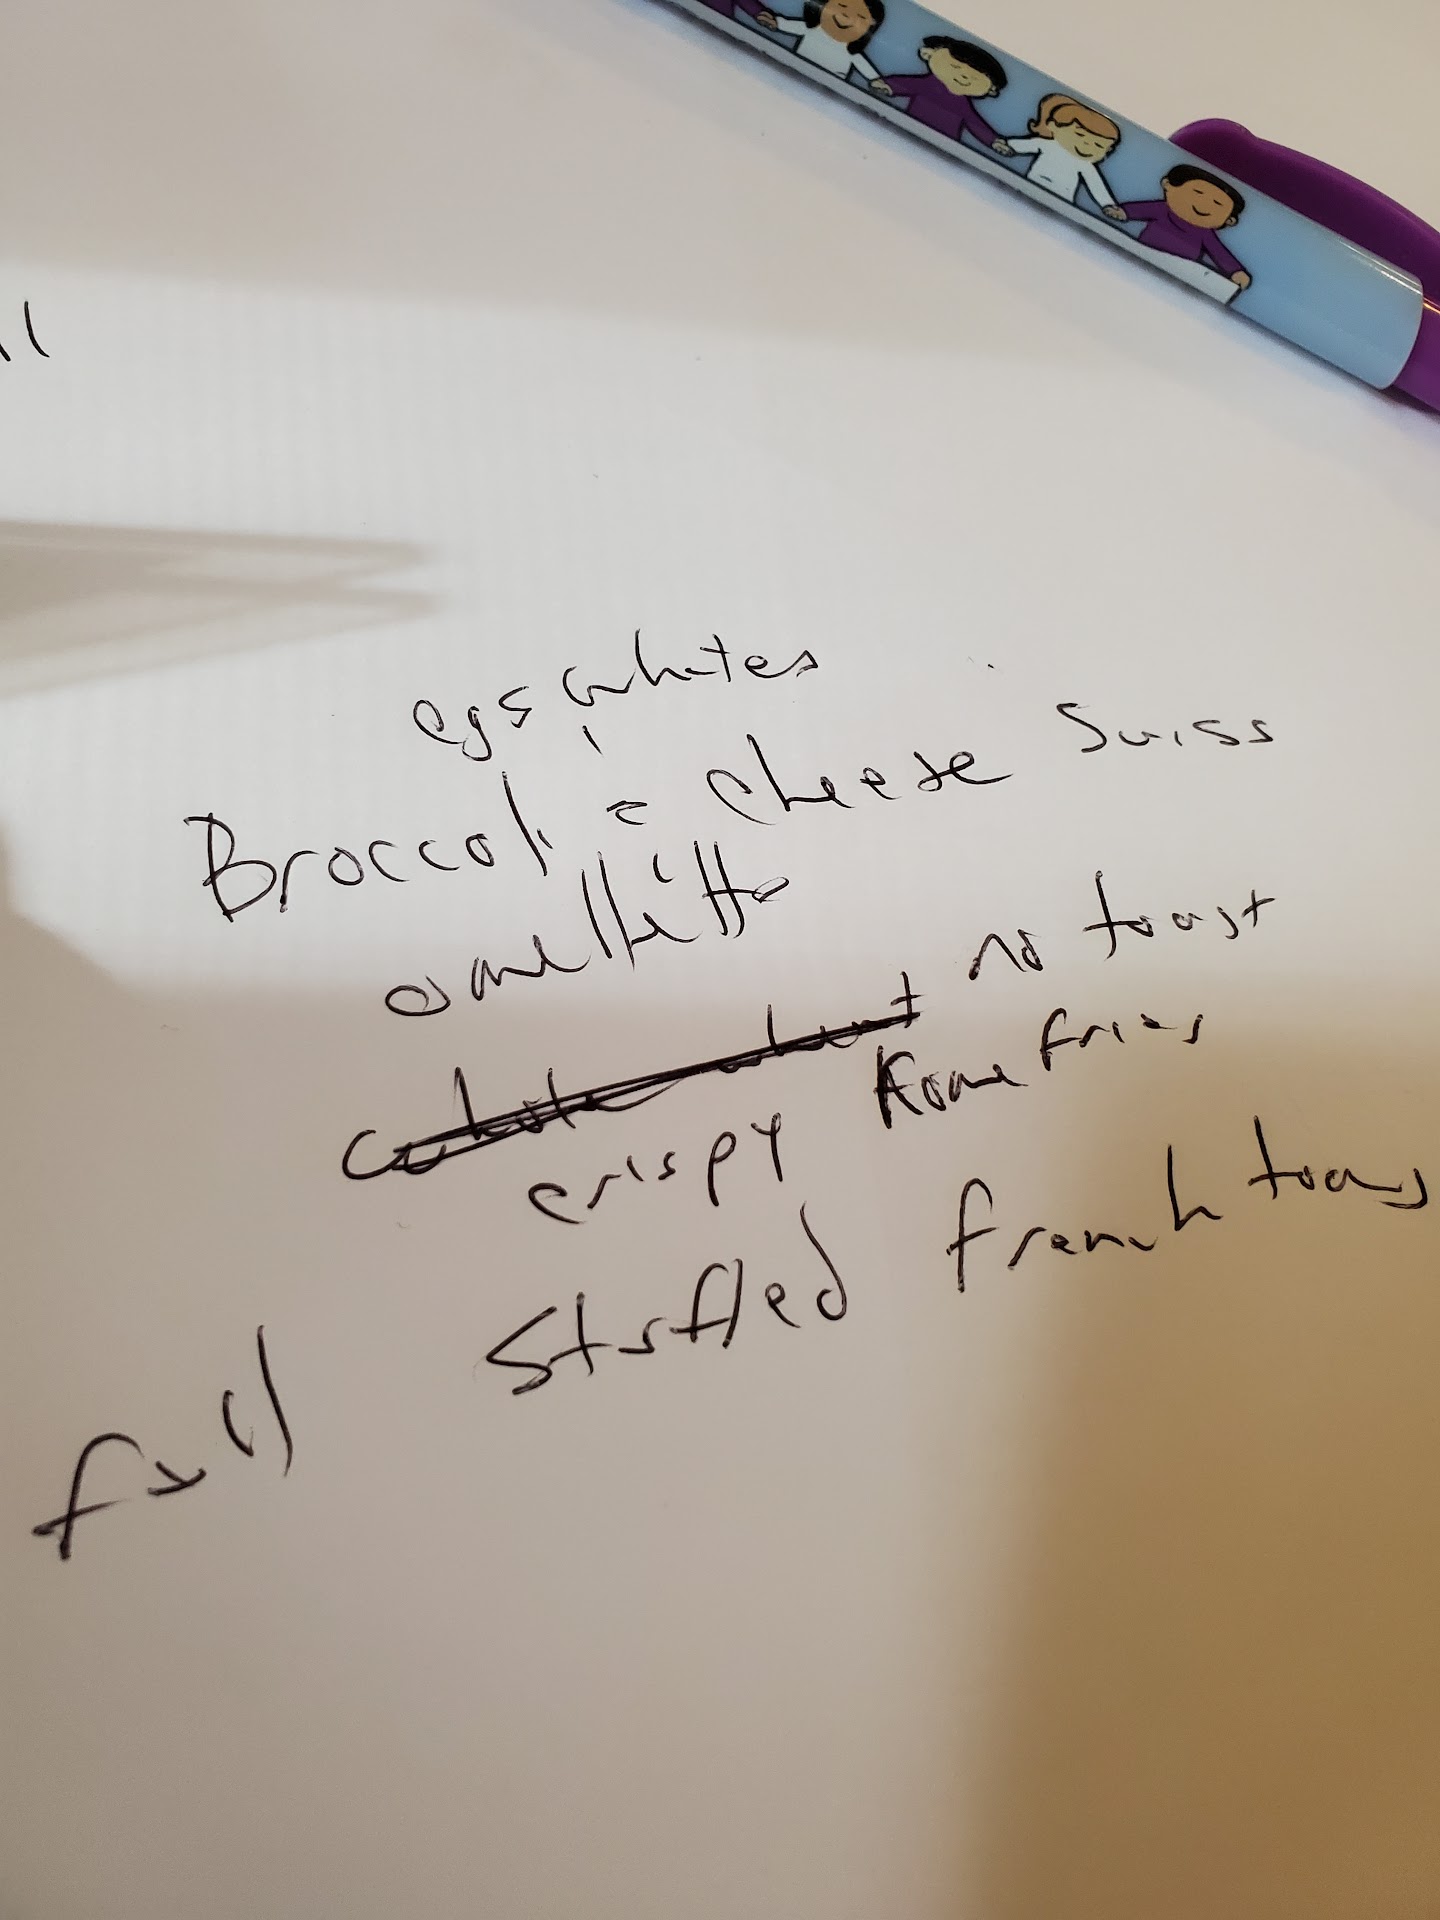 egs whites
Broccoli & cheese Suiss
omellitte
whole wheat no toast
crispy home fries
full stuffed french toas